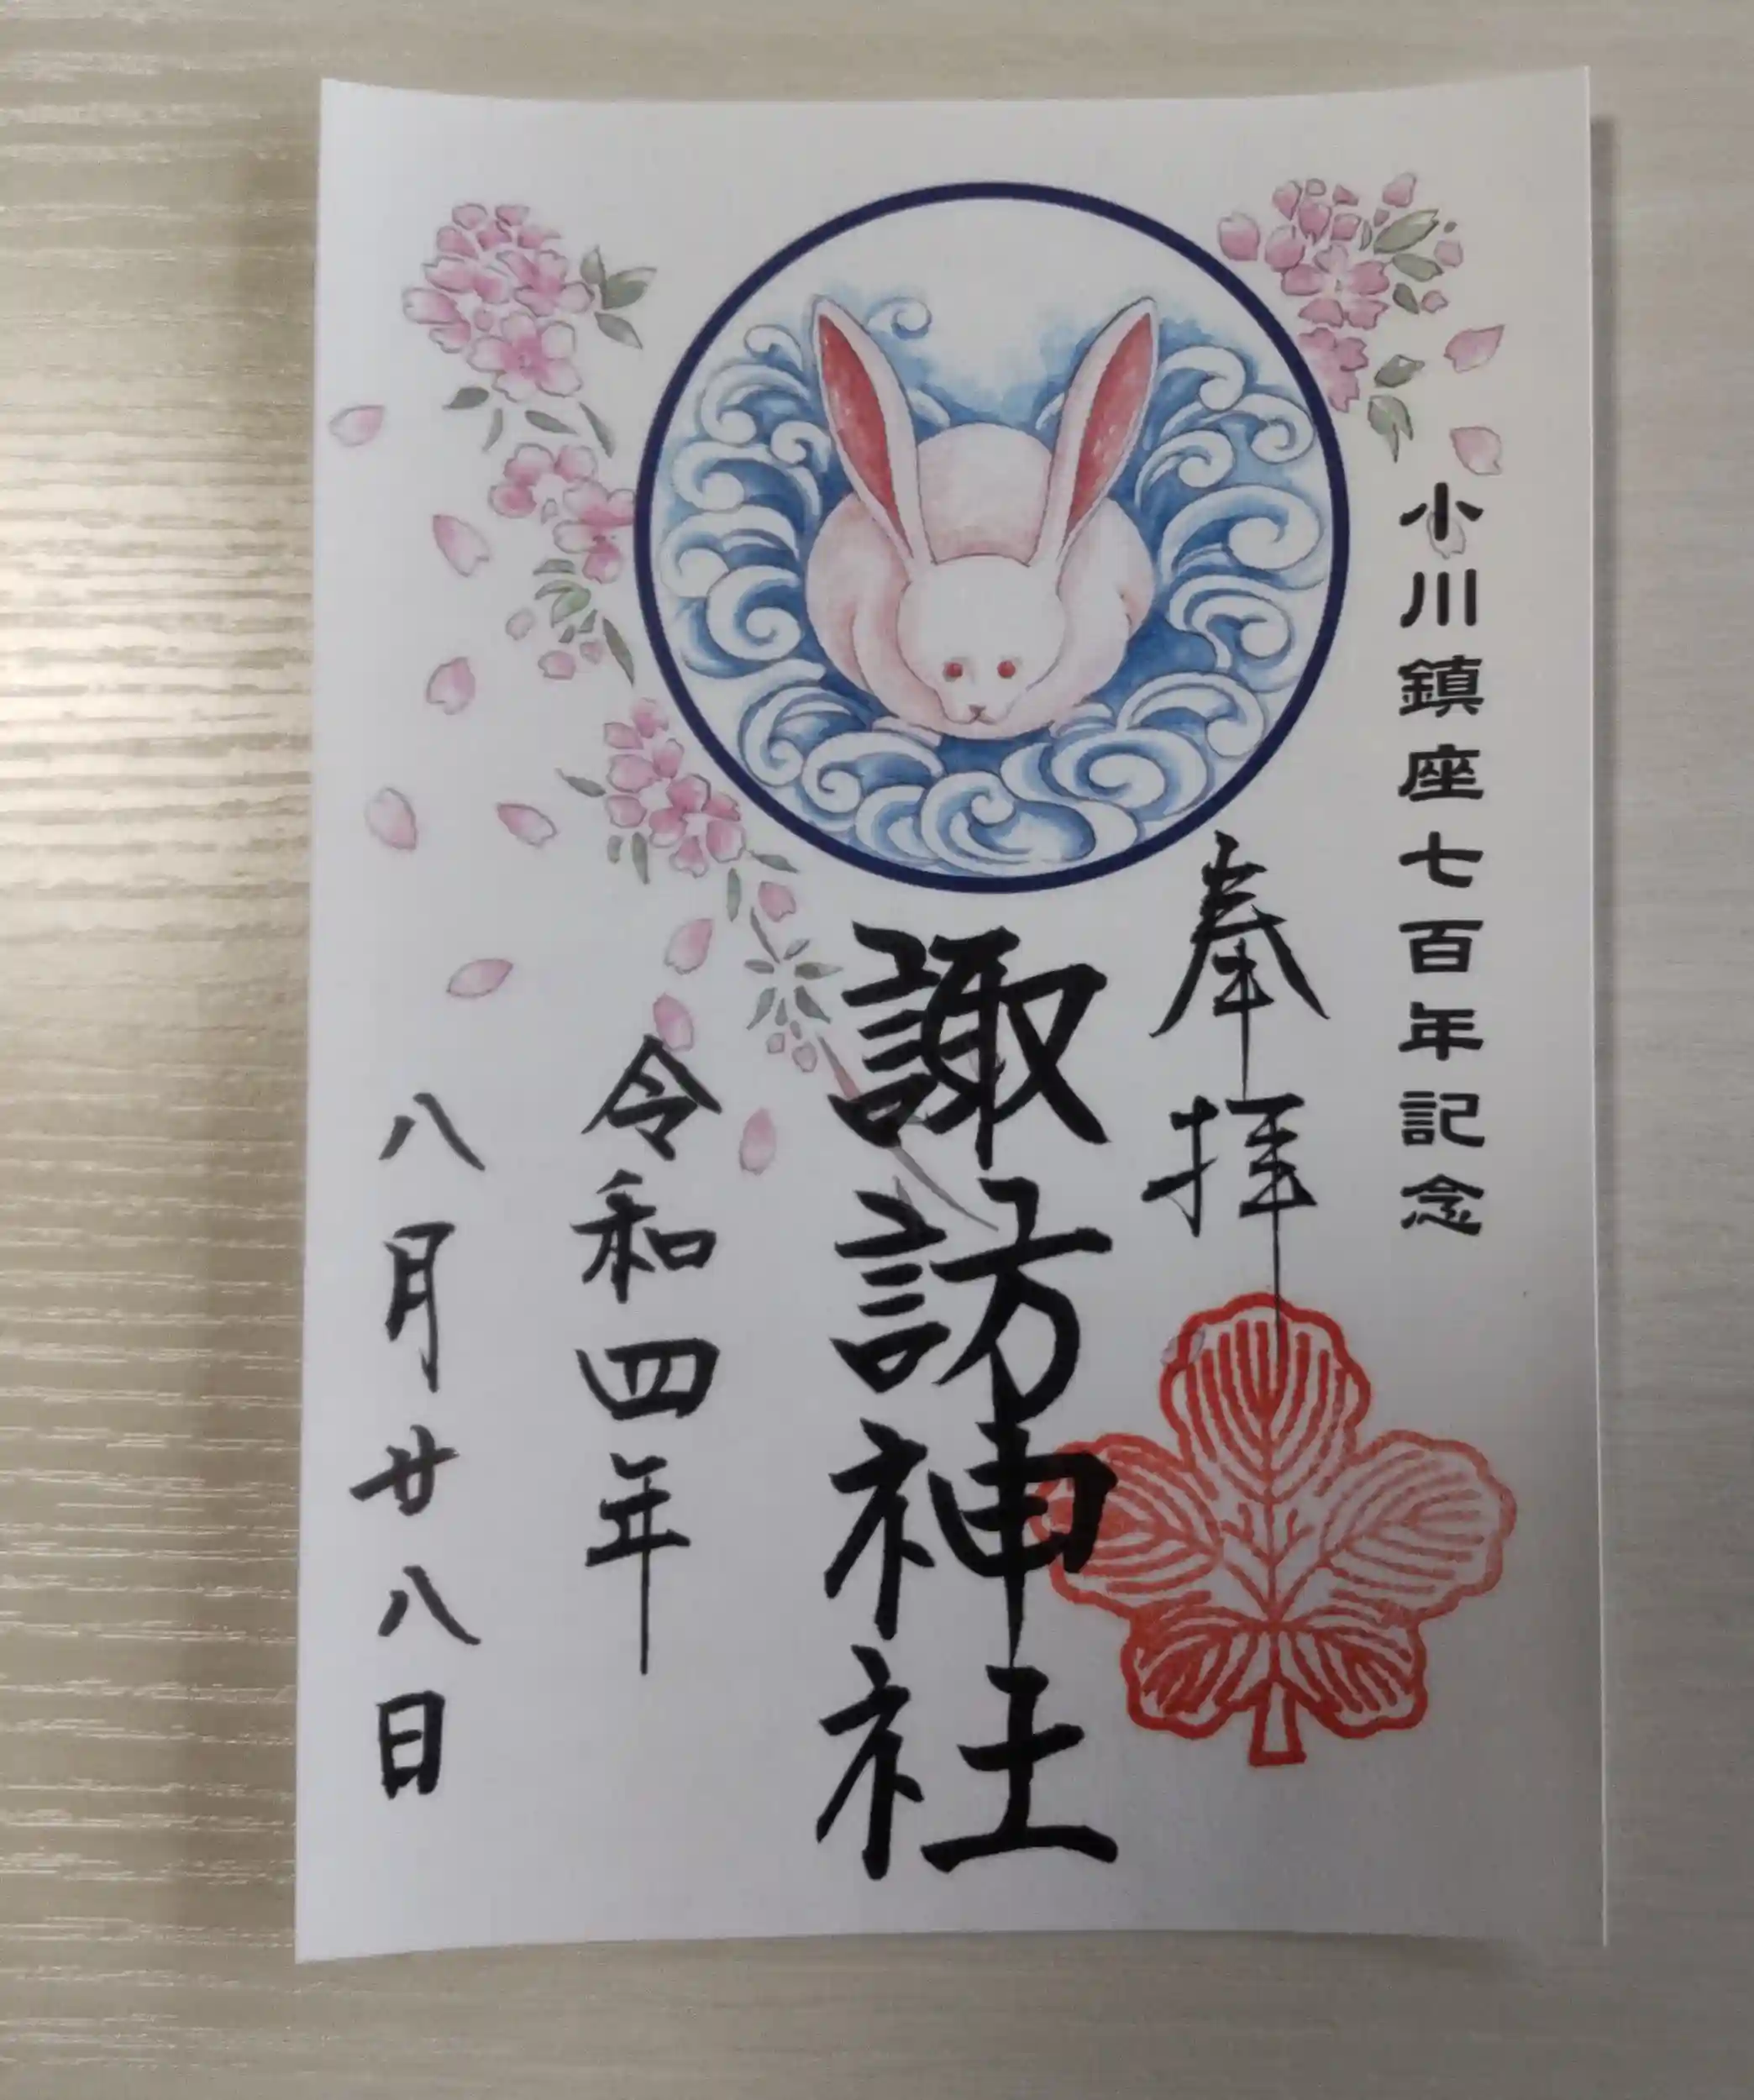 小川鎮座七百年記念
奉拝
諏訪神社
令和四年
八月廿八日